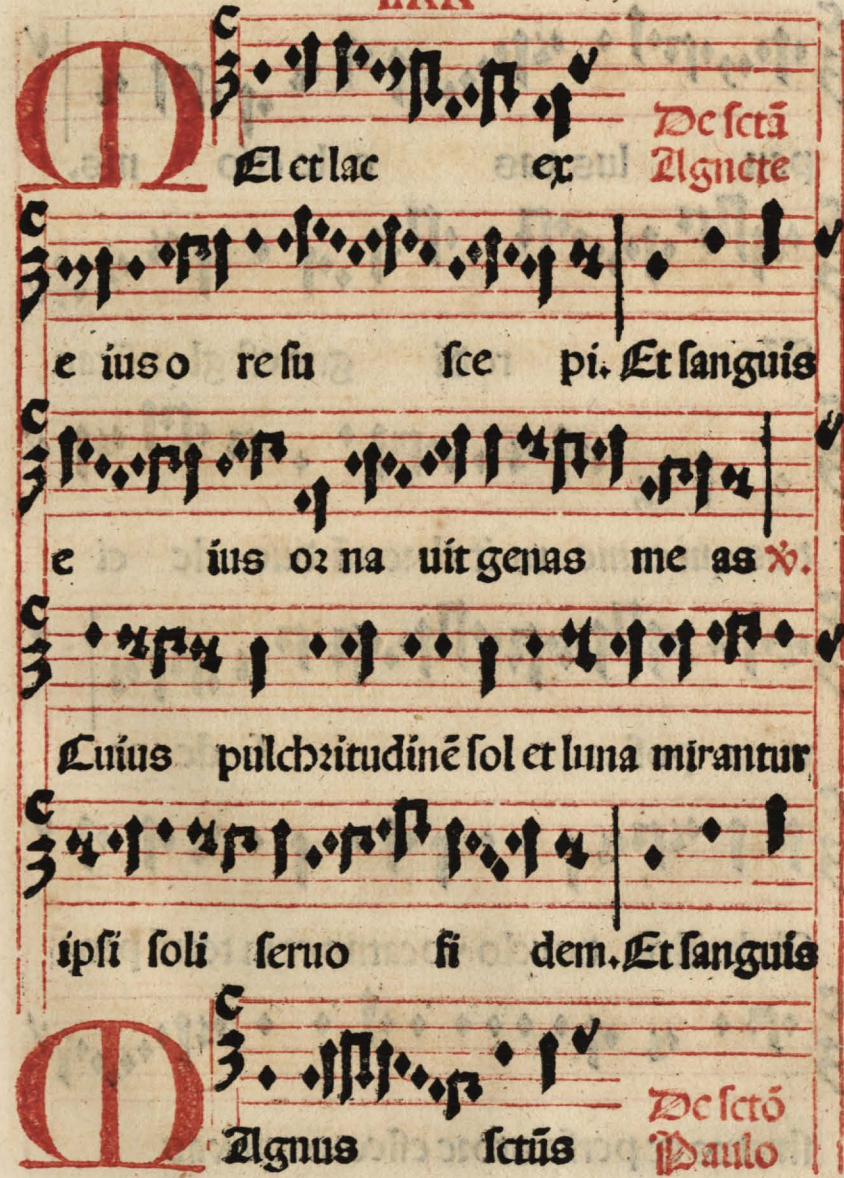 LXX
MEl et lac ex De sctā
Agnete
e ius o re su sce pi. Et sanguis
e ius or na uit genas me as ℣.
Cuius pulchritudinē sol et luna mirantur
ipsi soli seruo fi dem. Et sanguis
MAgnus sctūs De sctō
Paulo